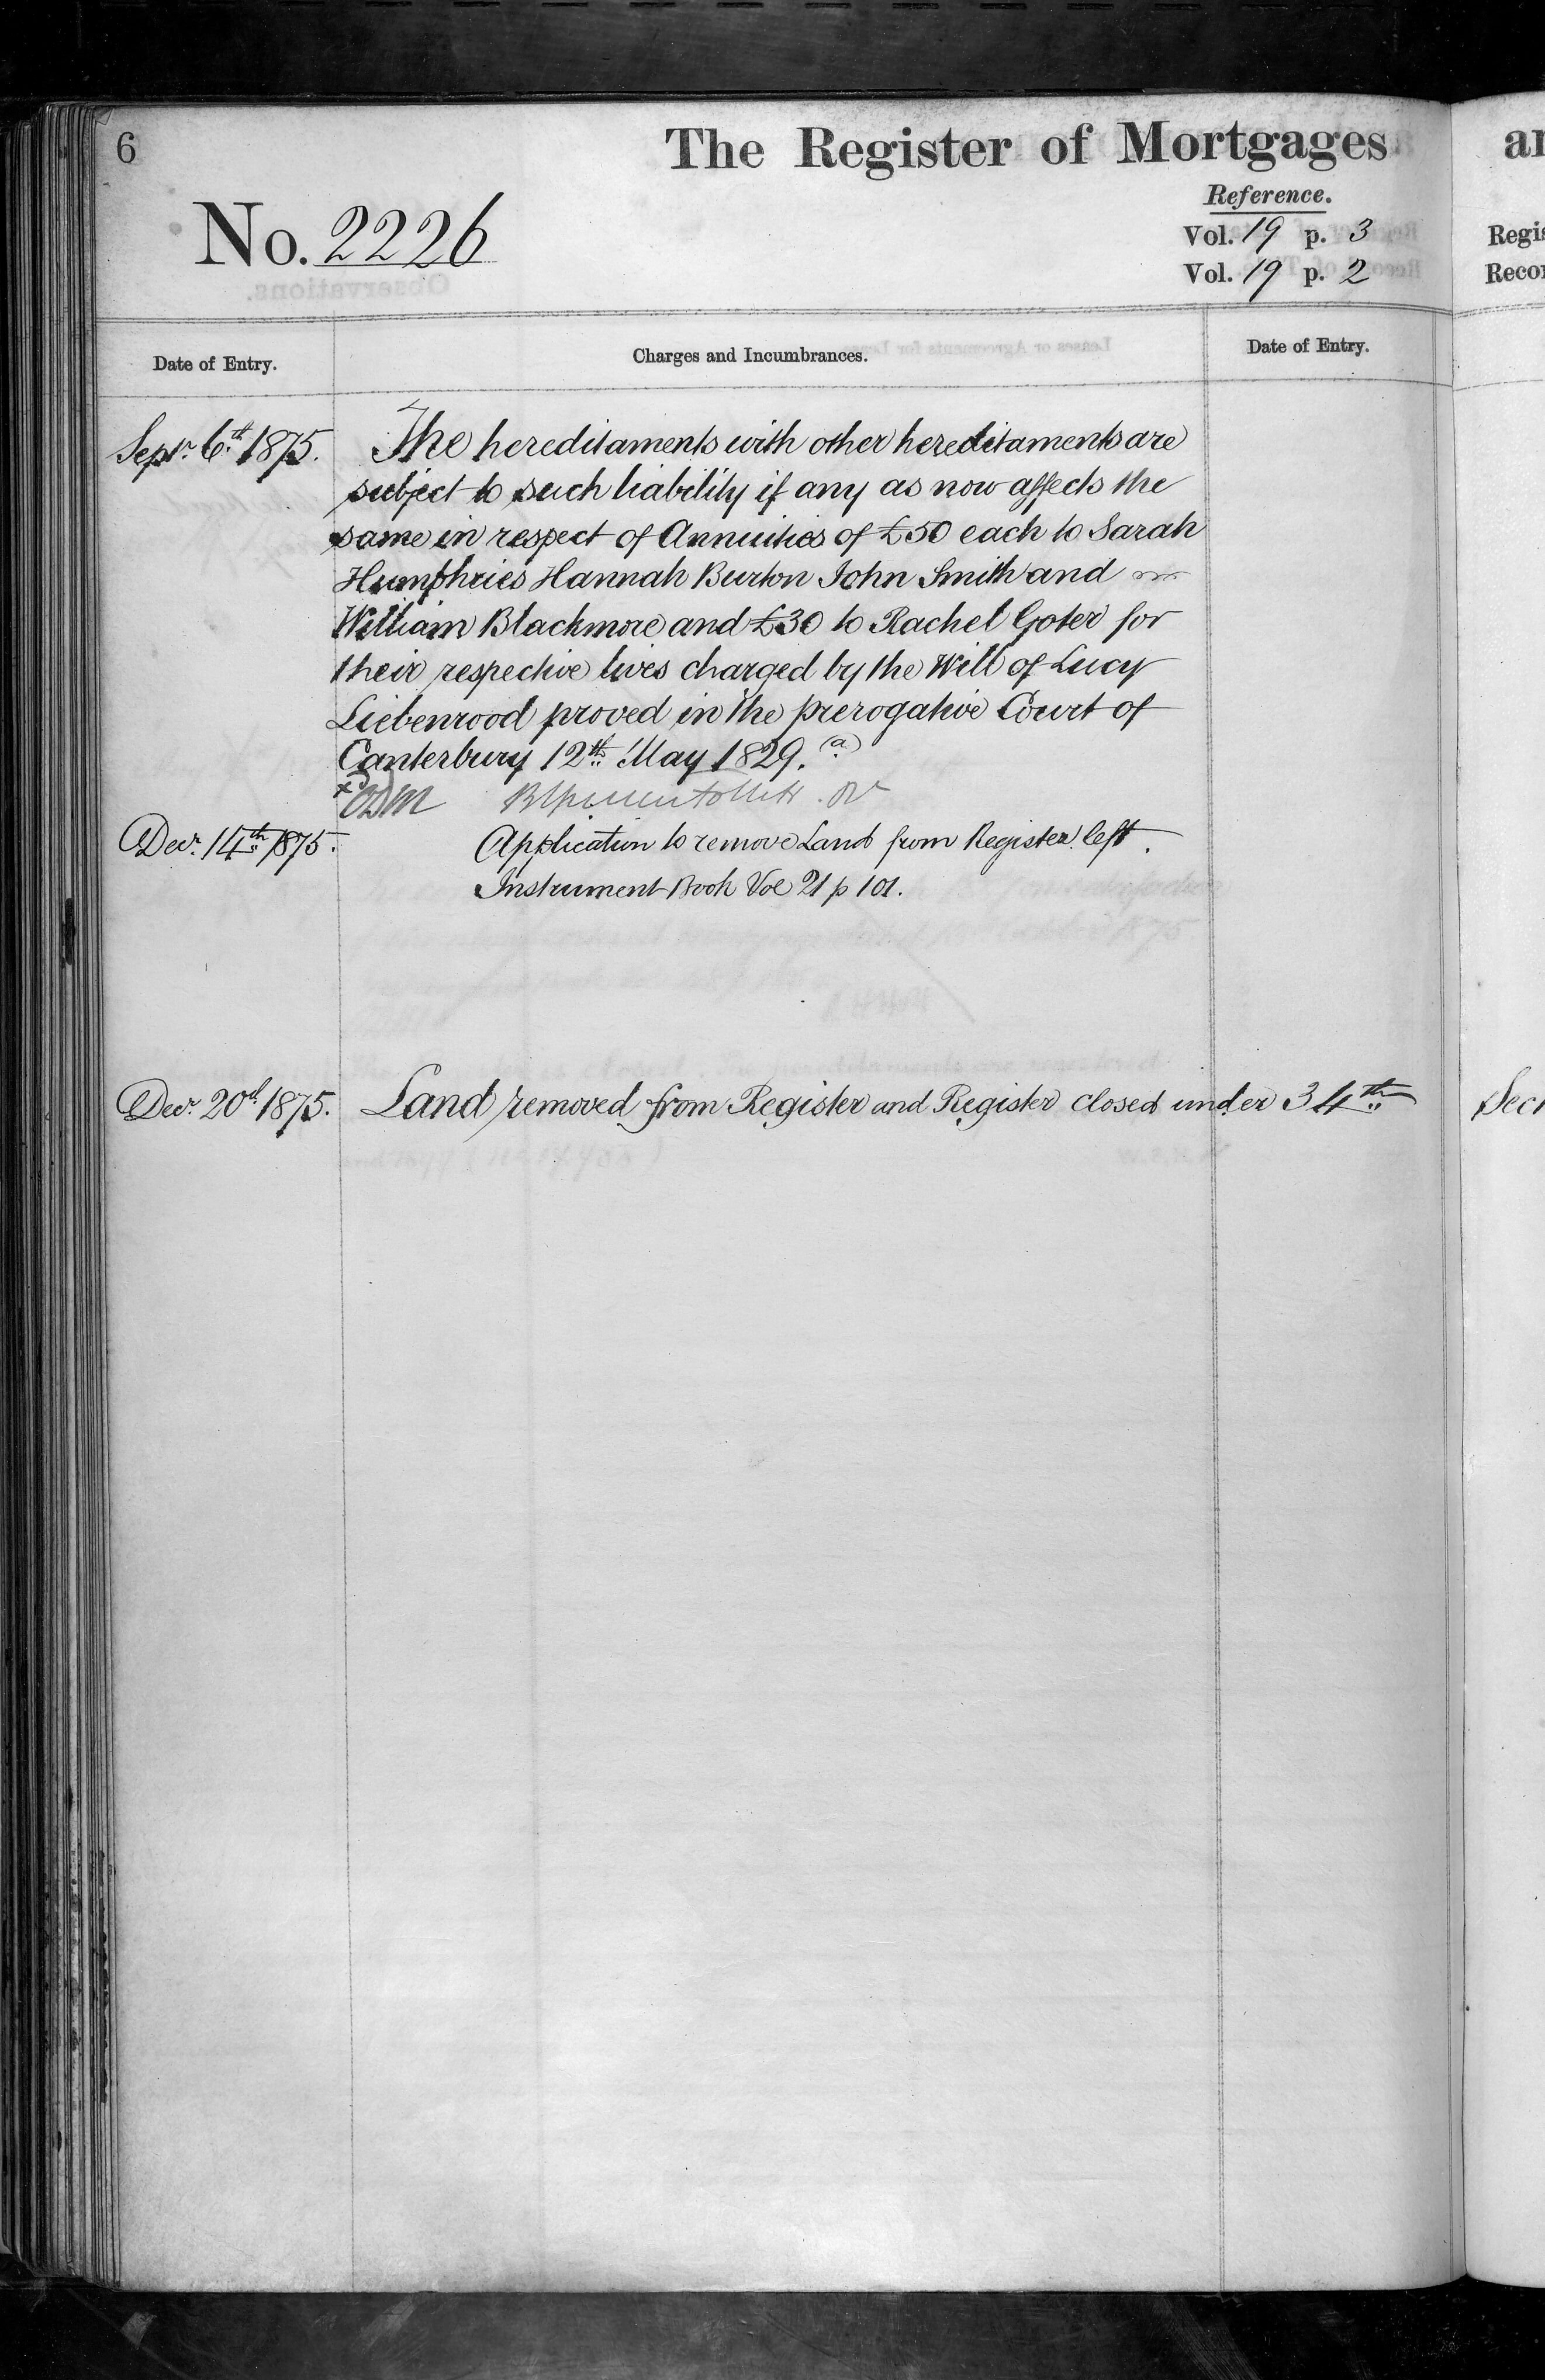 6
The Register of Mortgages
Reference.
No. 2226
Vol. 19 p. 3
Vol. 19 p. 2
Date of Entry.
Charges and Incumbrances.
Date of Entry.
Septr. 6th 1875.
The hereditaments with other hereditaments are
subject to such liability if any as now affects the
same in respect of Annuities of £50 each to Sarah
Humphries Hannah Burton John Smith and
William Blackmore and £30 to Rachel Goter for
their respective lives charged by the Will of Lucy
Liebenrood proved in the prerogative Court of
Canterbury 12th May 1829. (a)
Decr. 14th 1875.
Application to remove Land from Register left.
Instrument Book Vol 21 p 101.
Decr. 20th 1875.
Land removed from Register and Register closed under 34th